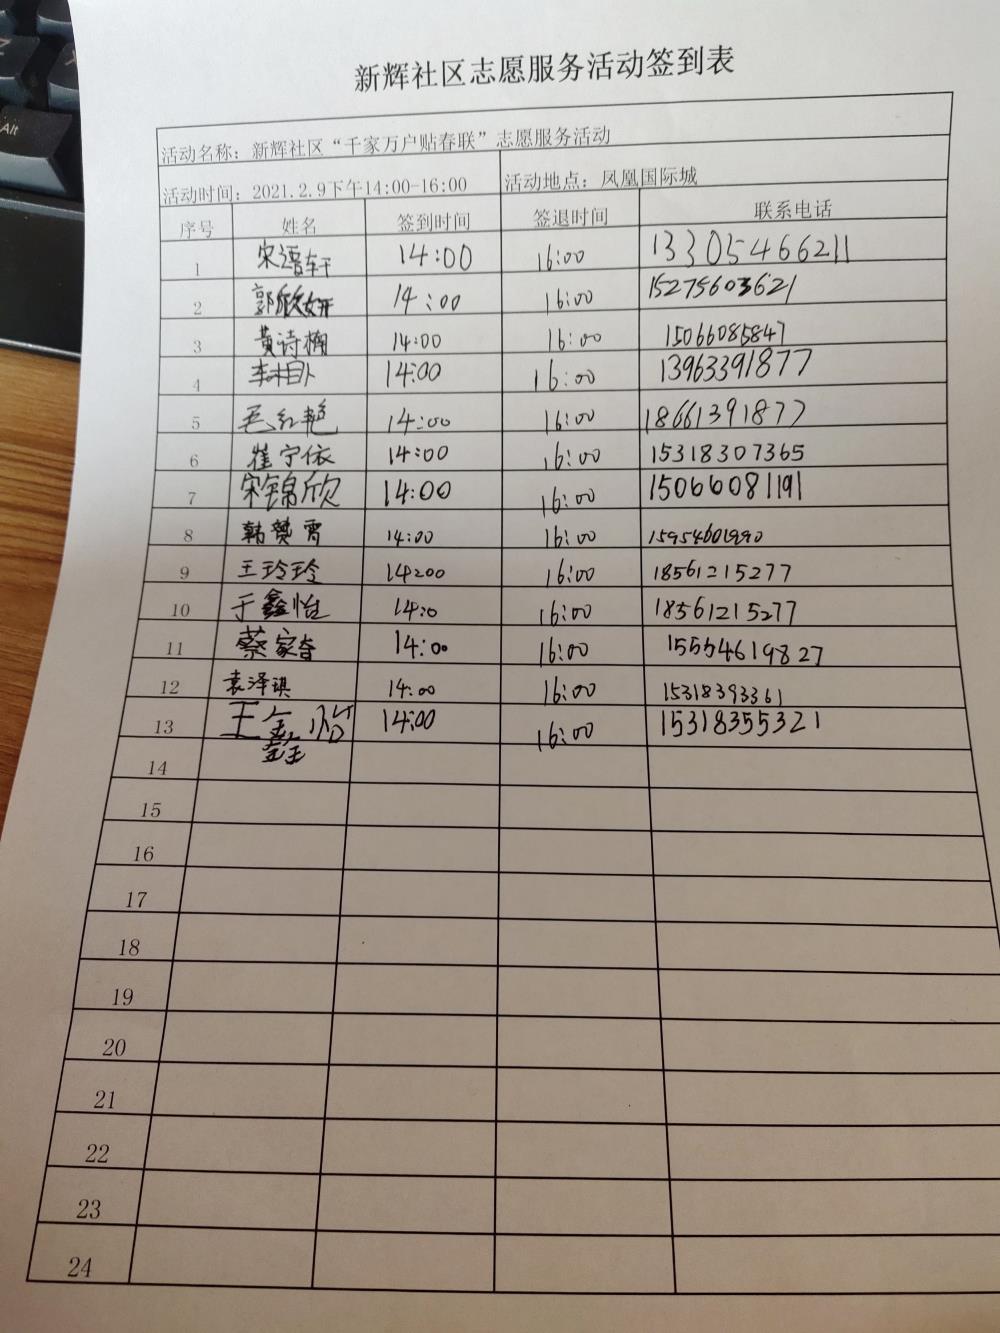 Alt
新辉社区志愿服务活动签到表
活动名称：新辉社区“千家万户贴春联”志愿服务活动
活动时间：2021.2.9下午14:00-16:00 活动地点：凤凰国际城
序号 姓名 签到时间 签退时间 联系电话
1 14:00 16:00 13305466211
2 郭欣妍 14:00 16:00 15275603621
3 黄诗楠 14:00 16:00 15066085847
4 14:00 16:00 13963391877
5 毛红艳 14:00 16:00 18661391877
6 崔宁依 14:00 16:00 15318307365
7 宋锦欣 14:00 16:00 15066081191
8 韩赞霄 14:00 16:00 15954601990
9 王玲玲 14:00 16:00 18561215277
10 于鑫怡 14:0 16:00 18561215277
11 蔡家 14:00 16:00 15554619827
12 袁泽琪 14:00 16:00 15318393361
13 王鑫怡 14:00 16:00 15318355321
14
15
16
17
18
19
20
21
22
23
24